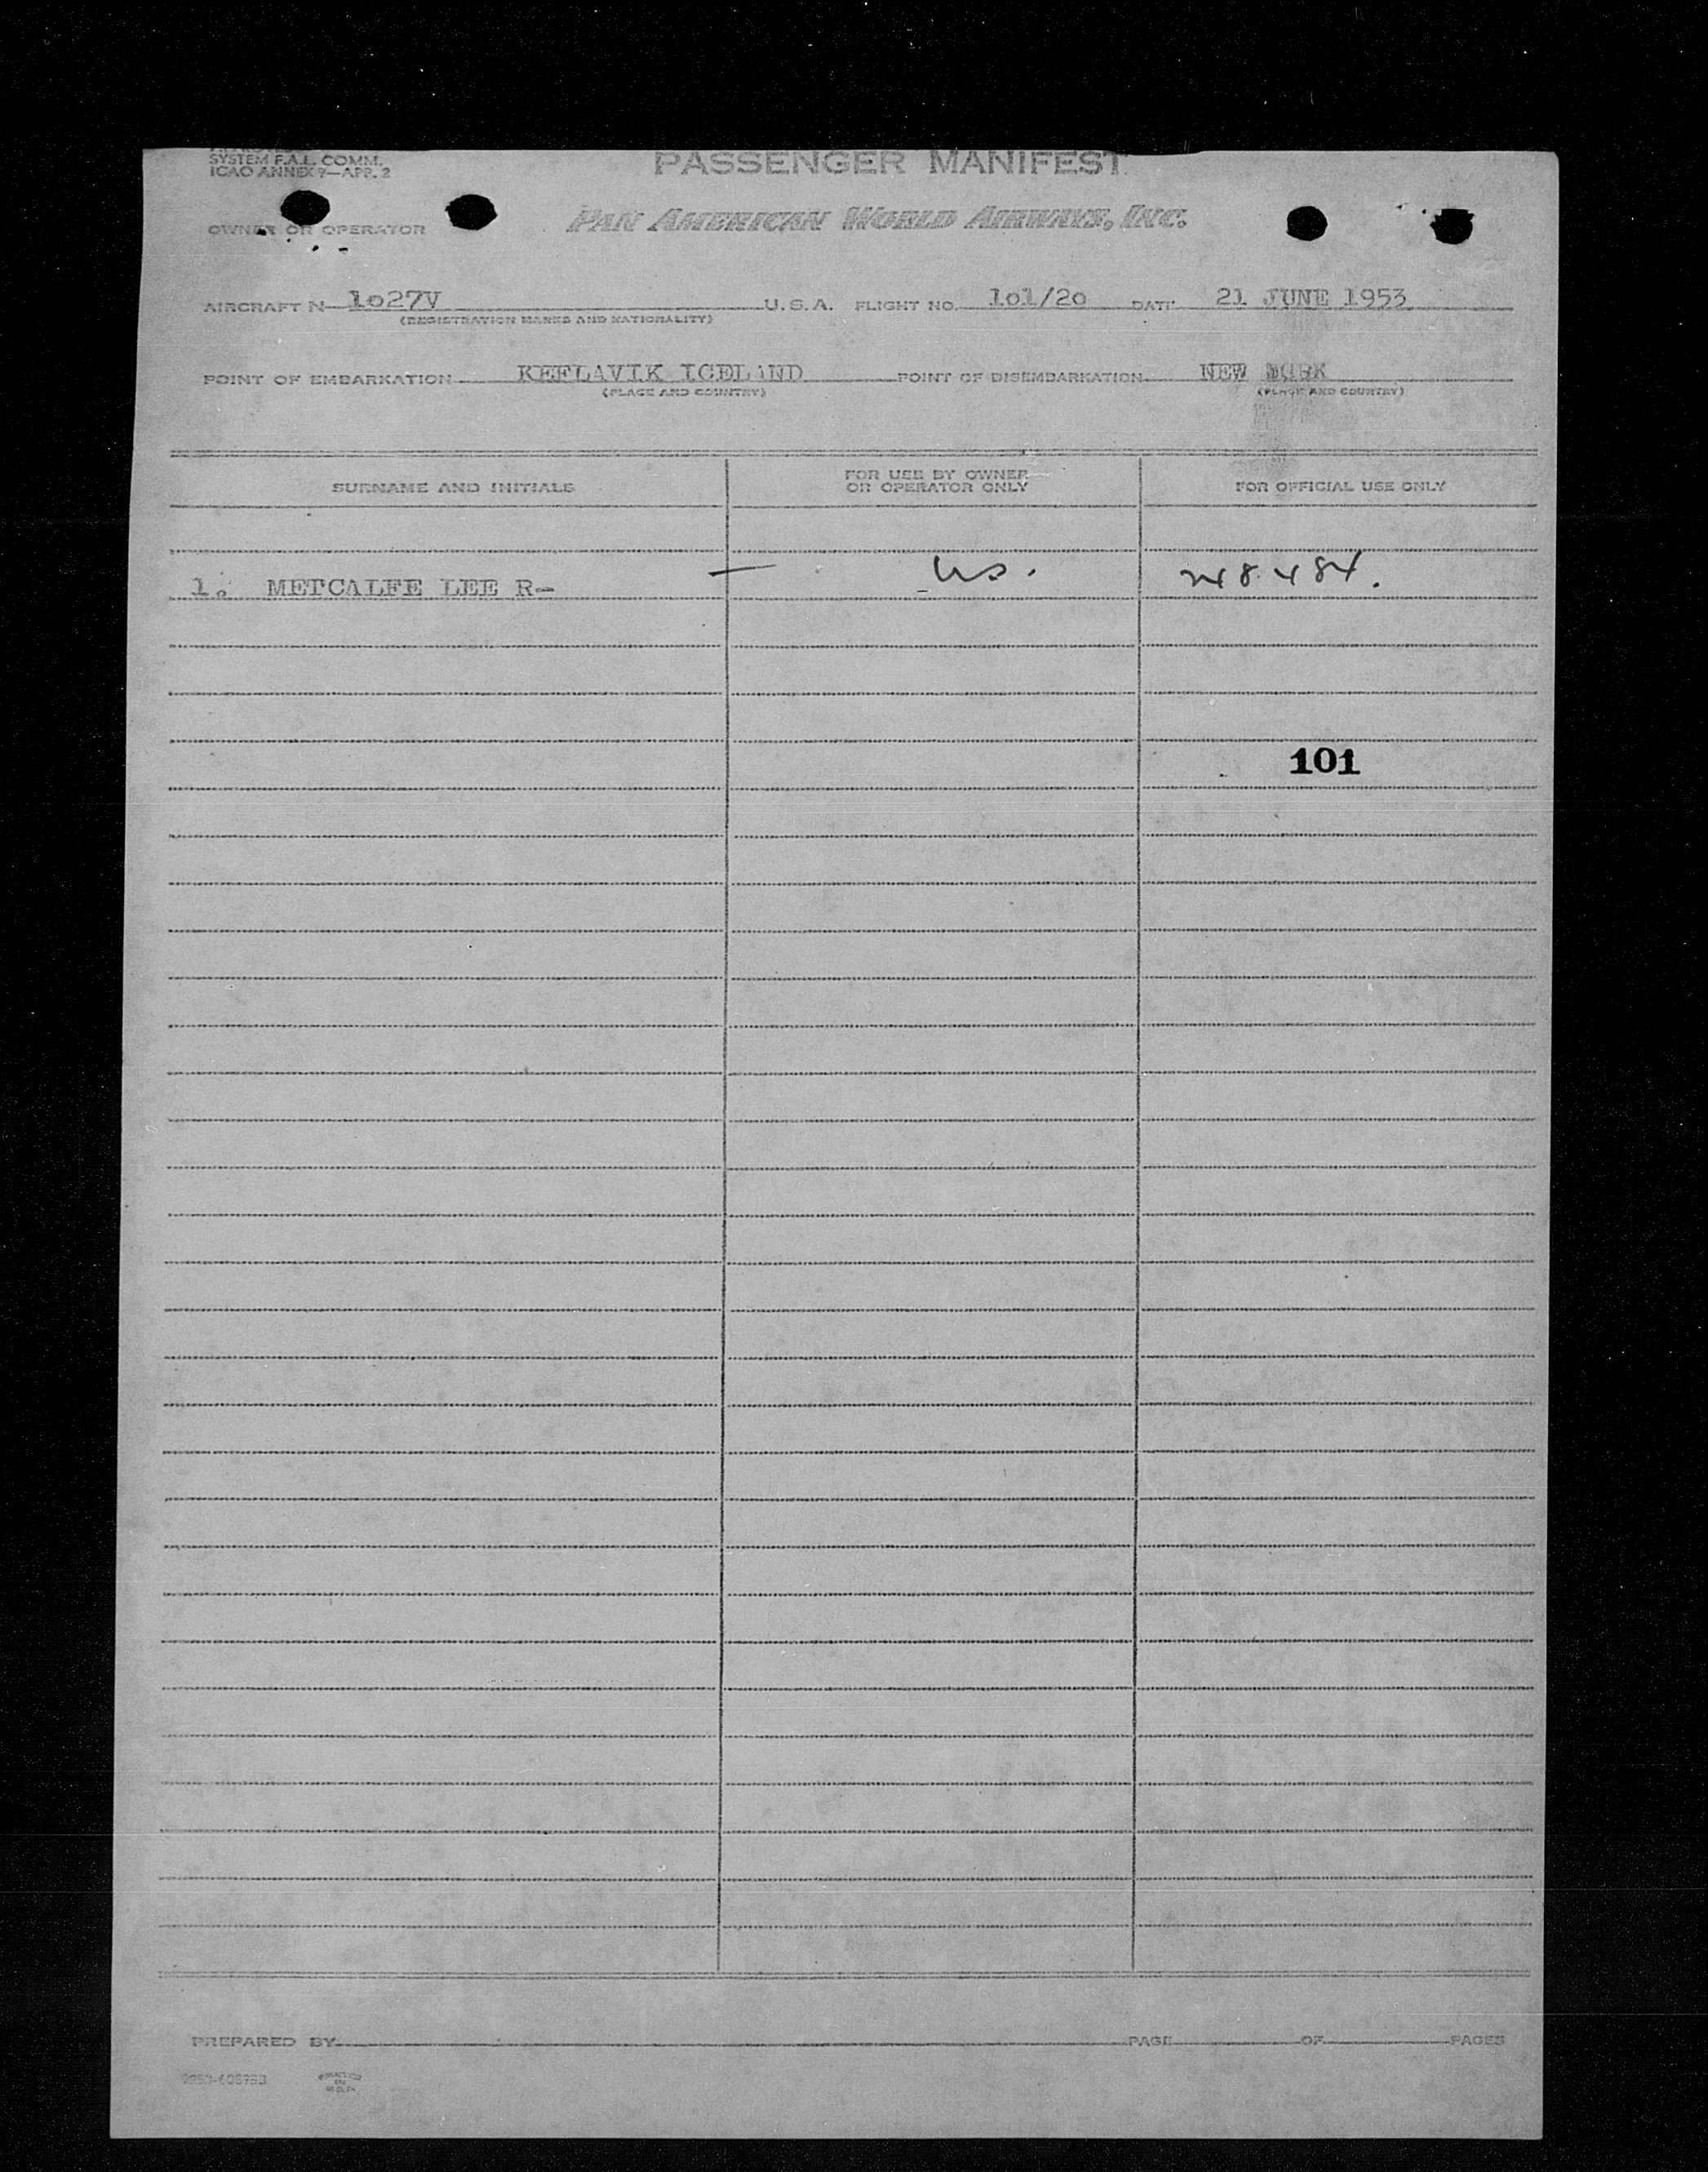 SYSTEM F.A.L. COMM.
ICAO ANNEX 9—APP. 2
PASSENGER MANIFEST
OWNER OR OPERATOR
PAN AMERICAN WORLD AIRWAYS, INC.
AIRCRAFT N 1o27V U.S.A. FLIGHT NO. 1o1/2o DATE 21 JUNE 1953
(REGISTRATION MARKS AND NATIONALITY)
POINT OF EMBARKATION KEFLAVIK ICELAND POINT OF DISEMBARKATION NEW YORK
(PLACE AND COUNTRY) (PLACE AND COUNTRY)
SURNAME AND INITIALS
FOR USE BY OWNER
OR OPERATOR ONLY
FOR OFFICIAL USE ONLY
1. METCALFE LEE R- — US. 248484.
101
PREPARED BY PAGE OF PAGES